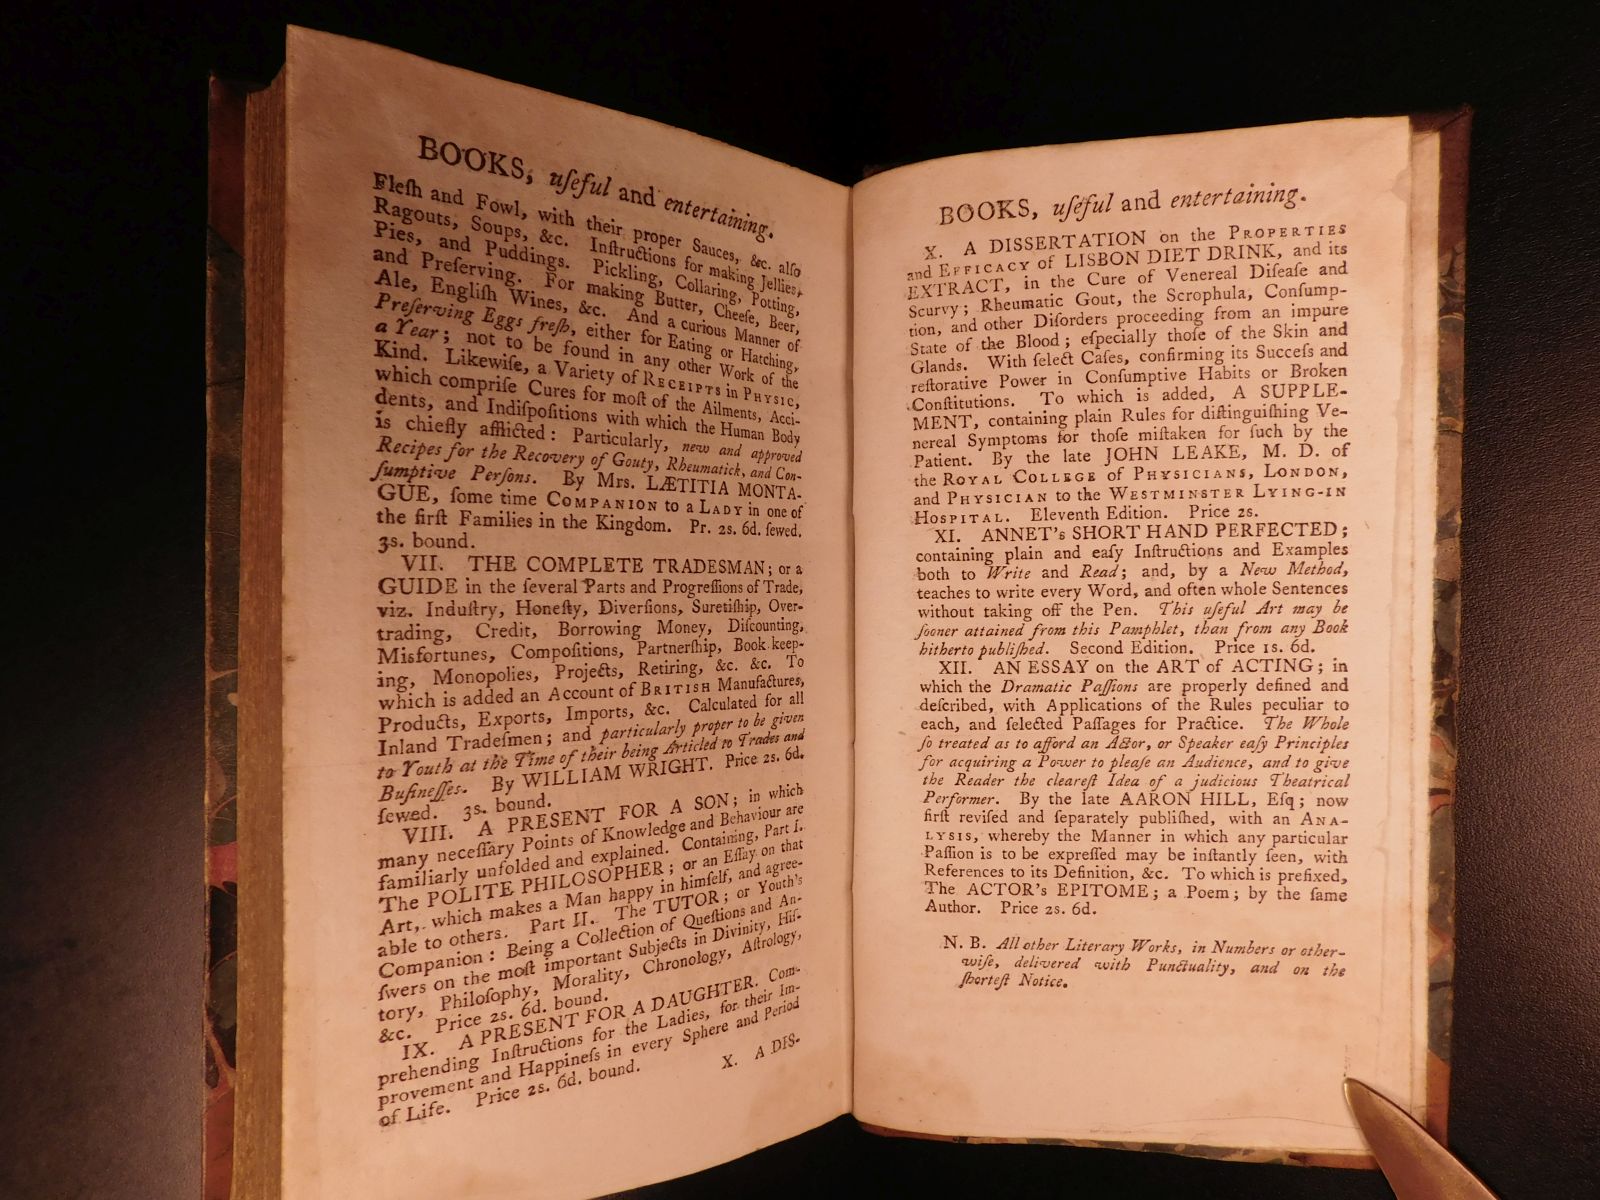 BOOKS, uſeful and entertaining.
Fleſh and Fowl, with their proper Sauces, &c. alſo
Ragouts, Soups, &c. Inſtructions for making Jellies,
Pies, and Puddings. Pickling, Collaring, Potting,
and Preſerving. For making Butter, Cheeſe, Beer,
Ale, Engliſh Wines, &c. And a curious Manner of
Preſerving Eggs freſh, either for Eating or Hatching,
a Year; not to be found in any other Work of the
Kind. Likewiſe, a Variety of RECEIPTS in PHYSIC,
which compriſe Cures for moſt of the Ailments, Acci-
dents, and Indiſpoſitions with which the Human Body
is chiefly afflicted: Particularly, new and approved
Recipes for the Recovery of Gouty, Rheumatick, and Con-
ſumptive Perſons. By Mrs. LÆTITIA MONTA-
GUE, ſome time COMPANION to a LADY in one of
the firſt Families in the Kingdom. Pr. 2s. 6d. ſewed.
3s. bound.
VII. THE COMPLETE TRADESMAN; or a
GUIDE in the ſeveral Parts and Progreſſions of Trade,
viz. Induſtry, Honeſty, Diverſions, Suretiſhip, Over-
trading, Credit, Borrowing Money, Diſcounting,
Misfortunes, Compoſitions, Partnerſhip, Book-keep-
ing, Monopolies, Projects, Retiring, &c. &c. To
which is added an Account of BRITISH Manufactures,
Products, Exports, Imports, &c. Calculated for all
Inland Tradeſmen; and particularly proper to be given
to Youth at the Time of their being Articled to Trades and
Buſineſſes. By WILLIAM WRIGHT. Price 2s. 6d.
ſewed. 3s. bound.
VIII. A PRESENT FOR A SON; in which
many neceſſary Points of Knowledge and Behaviour are
familiarly unfolded and explained. Containing, Part I.
The POLITE PHILOSOPHER; or an Eſſay on that
Art, which makes a Man happy in himſelf, and agree-
able to others. Part II. The TUTOR; or Youth's
Companion: Being a Collection of Queſtions and An-
ſwers on the moſt important Subjects in Divinity, Hiſ-
tory, Philoſophy, Morality, Chronology, Aſtrology,
&c. Price 2s. 6d. bound.
IX. A PRESENT FOR A DAUGHTER. Com-
prehending Inſtructions for the Ladies, for their Im-
provement and Happineſs in every Sphere and Period
of Life. Price 2s. 6d. bound.
X. A DIS-
BOOKS, uſeful and entertaining.
X. A DISSERTATION on the PROPERTIES
and EFFICACY of LISBON DIET DRINK, and its
EXTRACT, in the Cure of Venereal Diſeaſe and
Scurvy; Rheumatic Gout, the Scrophula, Conſump-
tion, and other Diſorders proceeding from an impure
State of the Blood; eſpecially thoſe of the Skin and
Glands. With ſelect Caſes, confirming its Succeſs and
reſtorative Power in Conſumptive Habits or Broken
Conſtitutions. To which is added, A SUPPLE-
MENT, containing plain Rules for diſtinguiſhing Ve-
nereal Symptoms for thoſe miſtaken for ſuch by the
Patient. By the late JOHN LEAKE, M. D. of
the ROYAL COLLEGE of PHYSICIANS, LONDON,
and PHYSICIAN to the WESTMINSTER LYING-IN
HOSPITAL. Eleventh Edition. Price 2s.
XI. ANNET's SHORT HAND PERFECTED;
containing plain and eaſy Inſtructions and Examples
both to Write and Read; and, by a New Method,
teaches to write every Word, and often whole Sentences
without taking off the Pen. This uſeful Art may be
ſooner attained from this Pamphlet, than from any Book
hitherto publiſhed. Second Edition. Price 1s. 6d.
XII. AN ESSAY on the ART of ACTING; in
which the Dramatic Paſſions are properly defined and
deſcribed, with Applications of the Rules peculiar to
each, and ſelected Paſſages for Practice. The Whole
ſo treated as to afford an Actor, or Speaker eaſy Principles
for acquiring a Power to pleaſe an Audience, and to give
the Reader the cleareſt Idea of a judicious Theatrical
Performer. By the late AARON HILL, Eſq; now
firſt reviſed and ſeparately publiſhed, with an ANA-
LYSIS, whereby the Manner in which any particular
Paſſion is to be expreſſed may be inſtantly ſeen, with
References to its Definition, &c. To which is prefixed,
The ACTOR's EPITOME; a Poem; by the ſame
Author. Price 2s. 6d.
N. B. All other Literary Works, in Numbers or other-
wiſe, delivered with Punctuality, and on the
ſhorteſt Notice.